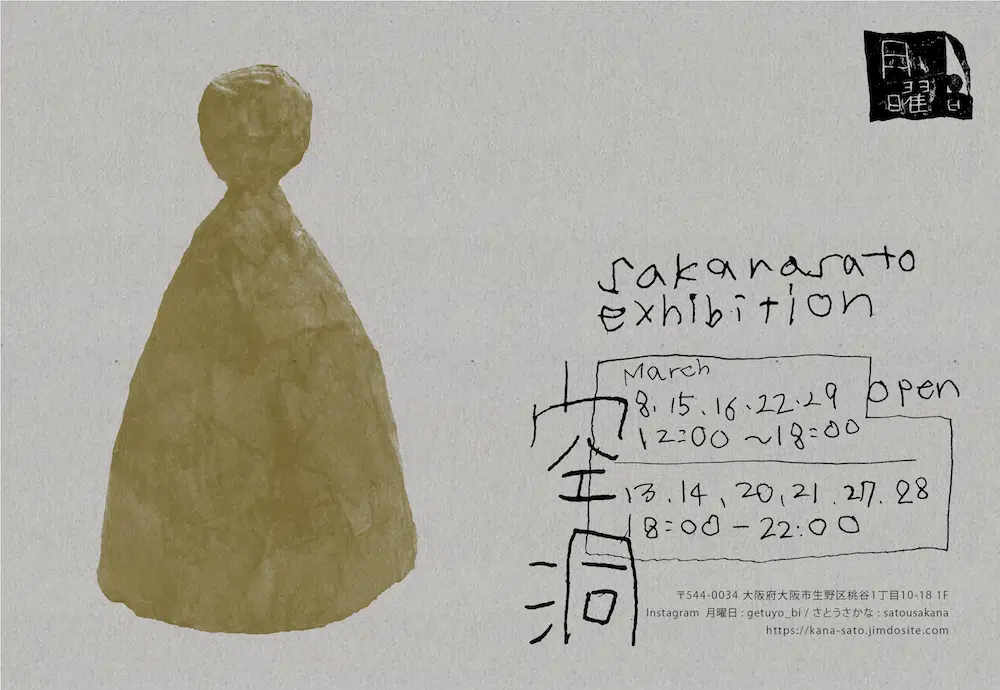 月曜日
sakanasato
exhibition
空洞
March
8.15.16.22.29
12:00 ~18:00
open
13.14,20,21.27.28
18:00-22:00
〒544-0034 大阪府大阪市生野区桃谷1丁目10-18 1F
Instagram 月曜日 : getuyo_bi / さとうさかな : satousakana
https://kana-sato.jimdosite.com